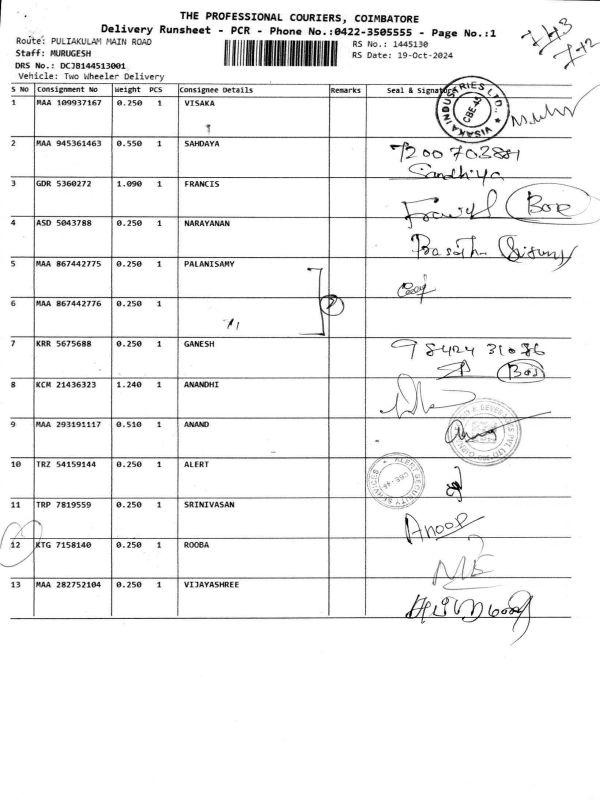 THE PROFESSIONAL COURIERS, COIMBATORE
Delivery Runsheet - PCR - Phone No.:0422-3505555 - Page No.:1
Route: PULIAKULAM MAIN ROAD
RS No.: 1445130
Staff: MURUGESH
RS Date: 19-Oct-2024
DRS No.: DCJB144513001
Vehicle: Two Wheeler Delivery
S NO Consignment No Weight PCS Consignee Details Remarks Seal & Signature
1 MAA 109937167 0.250 1 VISAKA
VISAKA INDUSTRIES LTD., CBE-45
2 MAA 945361463 0.550 1 SAHDAYA
Sandhiya
3 GDR 5360272 1.090 1 FRANCIS
4 ASD 5043788 0.250 1 NARAYANAN
5 MAA 867442775 0.250 1 PALANISAMY
6 MAA 867442776 0.250 1
7 KRR 5675688 0.250 1 GANESH
98424 31086
8 KCM 21436323 1.240 1 ANANDHI
9 MAA 293191117 0.510 1 ANAND
10 TRZ 54159144 0.250 1 ALERT
ALERT SECURITY SERVICES
11 TRP 7819559 0.250 1 SRINIVASAN
Anoop
12 KTG 7158140 0.250 1 ROOBA
13 MAA 282752104 0.250 1 VIJAYASHREE